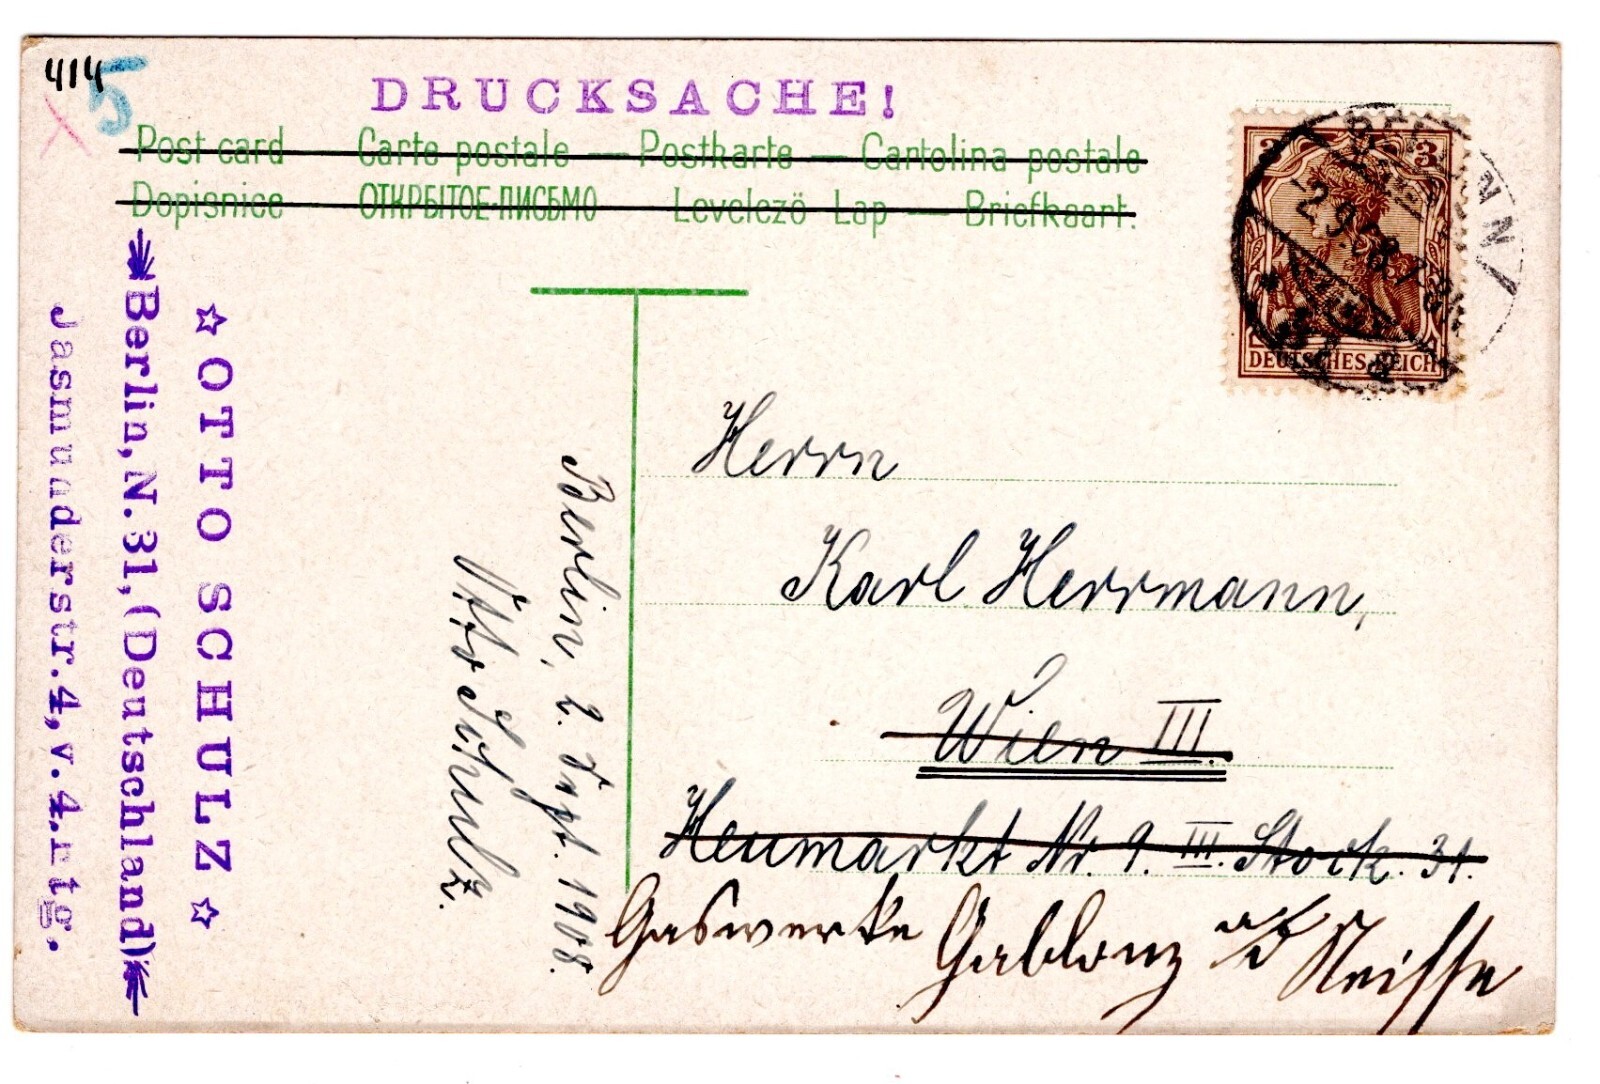 414
5
DRUCKSACHE!
Post card — Carte postale — Postkarte — Cartolina postale
Dopisnice ОТКРЫТОЕ-ПИСЬМО Levelező Lap — Briefkaart.
3 3
DEUTSCHES REICH
BERLIN N
2.9.08.7
☆ OTTO SCHULZ ☆
Berlin, N. 31, (Deutschland)
Jasmunderstr. 4, v. 4. rtg.
Berlin, 2. Sept. 1908.
Otto Schulz.
Herrn
Karl Herrmann,
Wien III.
Heumarkt Nr. 9. III. Stock. 31.
Gaswerke Gablonz a/d Neisse